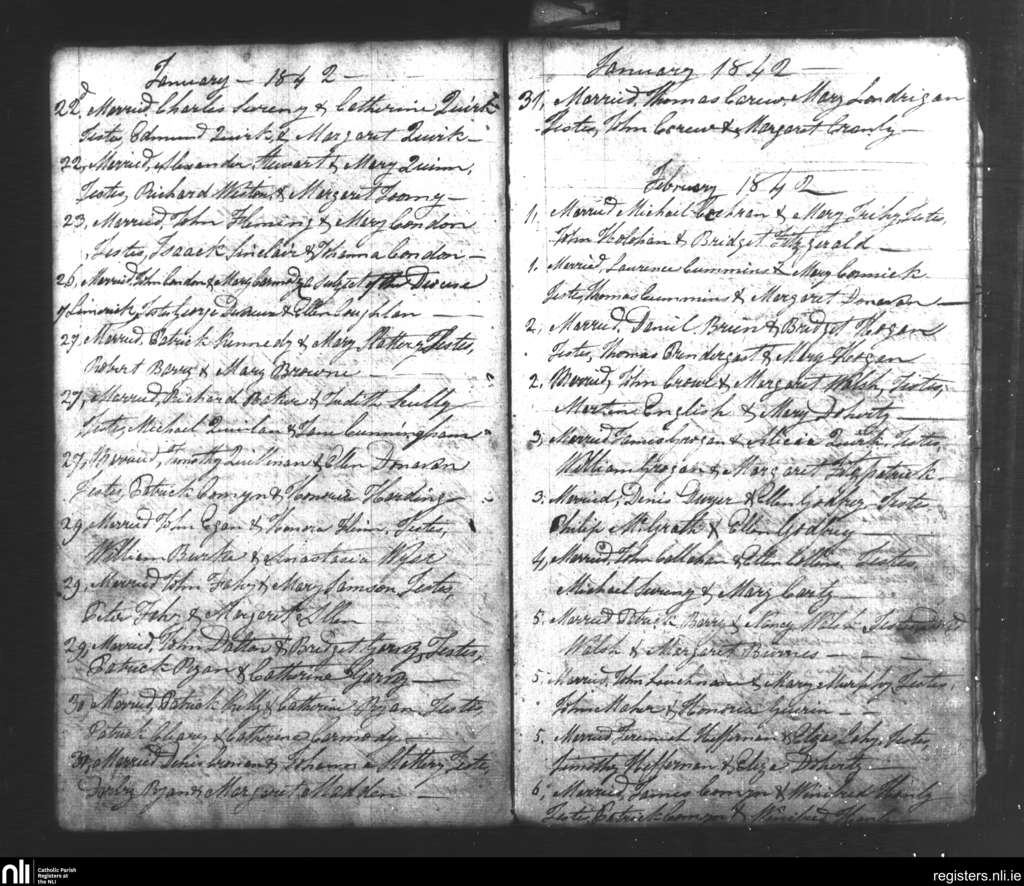 January - 1842 -
22d Married Charles Sweeny & Catherine Quirk
Testes, Edmund Quirk & Margaret Quirk -
22, Married, Alexander Stewart & Mary Quinn,
Testes, Richard Weston & Margaret Toomy -
23, Married, John Fleming & Mary Condon
Testes, Isaack Sinclair & Johanna Condon -
26, Married John Condon & Mary Carmody a subject of the Diocese
of Limerick, Testes George & Ellen Coughlan -
27, Married, Patrick Kennedy & Mary Slattery, Testes,
Robert Barry & Mary Browne -
27, Married, Richard Baker & Judith Kully
Testes, Michael Quinlan & Jane Cunningham
27, Married, Timothy Quillman & Ellen Donavan
Testes, Patrick Comyn & Honoria Harding
29 Married John Egan & Honora Testes,
William Burke & Anastasia Wyse
29, Married John Fahy & Mary Samson Testes,
Peter Fahy & Margaret Allen -
29, Married, John Dalton & Bridget Testes,
Patrick Ryan & Catherine
30 Married, Patrick Kully & Catherine Ryan Testes,
Patrick Cleary & Catherine Carmody -
Married Denis & Johanna Slattery, Testes,
Ryan & Margaret Madden -
January 1842 -
31, Married, Thomas Carew & Mary Landrigan
Testes, John Carew & Margaret Cranly -
February 1842
1, Married Michael Cochran & Mary Testes,
John Holohan & Bridget Fitzgerald -
1. Married, Laurence Cummins & Mary Cormick
Testes, Thomas Cummins & Margaret Donavan -
2, Married, Daniel Brien & Bridget Hogan
Testes, Thomas Prendergast & Mary Hogan
2. Married, John Crowe & Margaret Walsh, Testes,
Martin English & Mary Doherty -
3, Married James Grogan & Alicia Quirk, Testes,
William Grogan & Margaret Fitzpatrick -
3. Married, Denis Dwyer & Ellen Godfrey Testes
Philip McGrath & Ellen Godfrey -
4, Married, John Callahan & Ellen Collins Testes,
Michael Sweeny & Mary Carty -
5. Married Patrick Barry & Nancy Walsh
Walsh & Margaret Burres - - -
5, Married, John & Mary Murphy, Testes,
John Maher & Honoria Guerin - -
5. Married Jeremiah Heffernan & Testes,
Timothy Heffernan & Eliza Doherty -
6, Married, James Comyn & Winifred
Testes, Patrick Comyn & Winifred
nli
Catholic Parish
Registers at
the NLI
registers.nli.ie